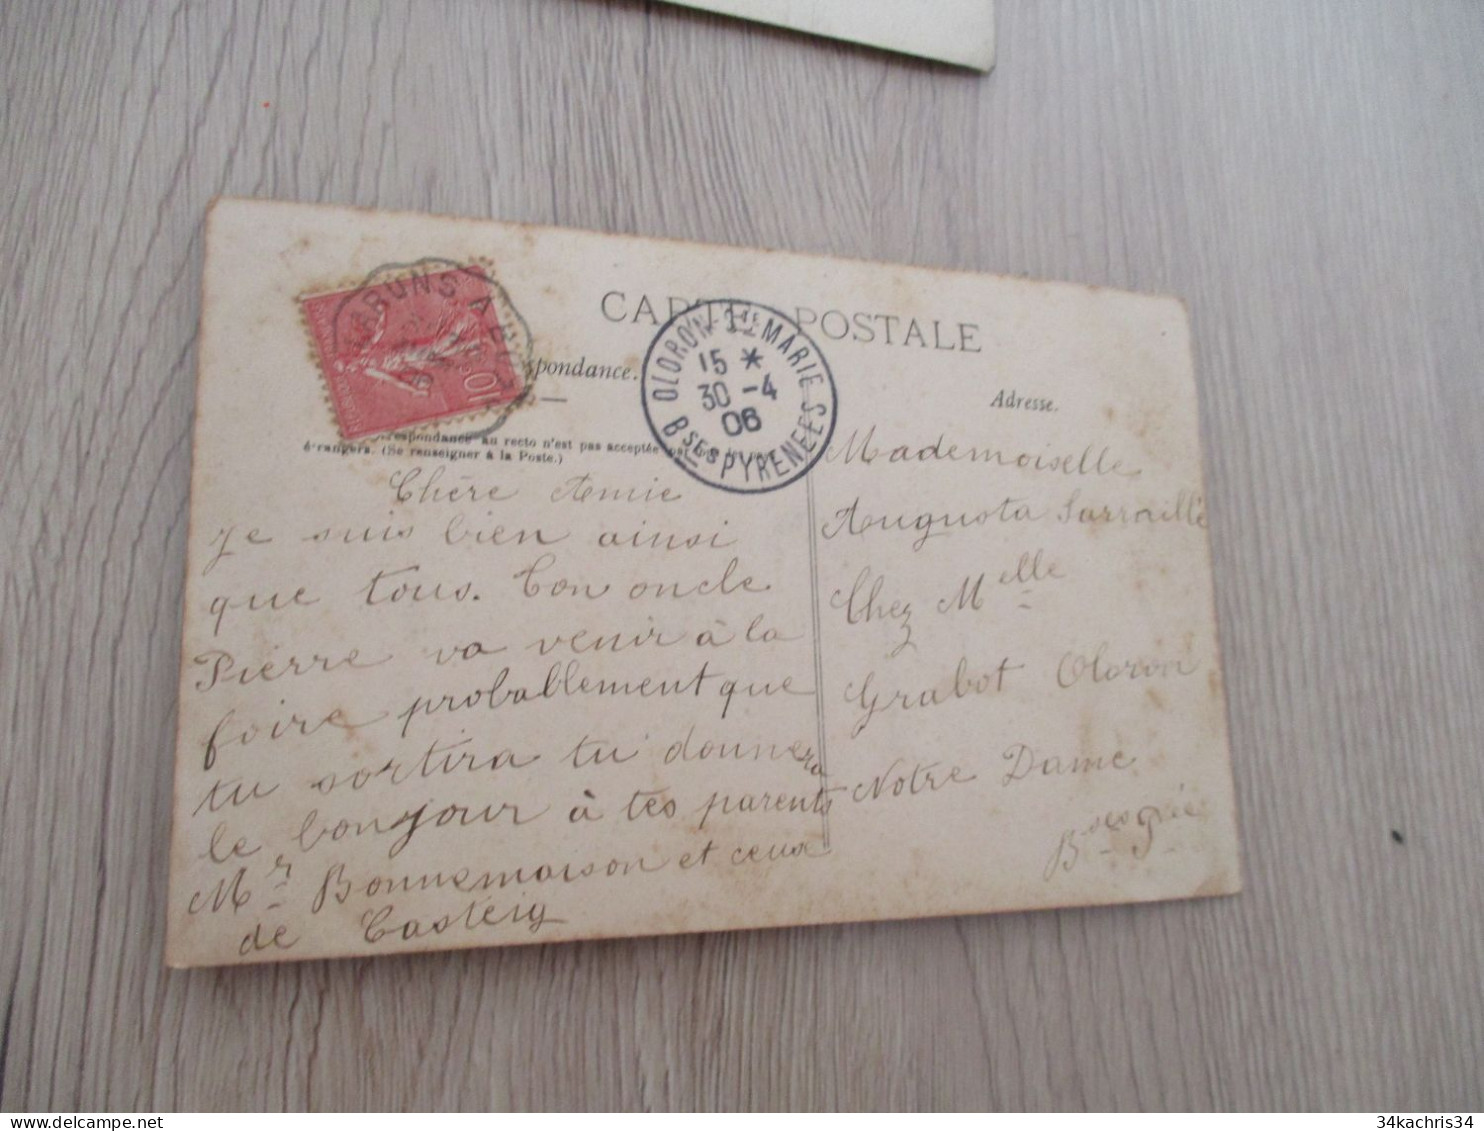 CARTE POSTALE
pondance.
Adresse.
respondance au recto n'est pas acceptée
étrangers. (Se renseigner à la Poste.)
LARUNS A
10
OLORON-STE MARIE
15 *
30 -4
06
BSES PYRENEES
Chère Amie
Je suis bien ainsi
que tous. Ton oncle
Pierre va venir à la
foire probablement que
tu sortira tu donnera
le bonjour à tes parents
Mr Bonnemaison et ceux
de Castéig
Mademoiselle
Augusta Sarraillé
Chez Melle
Grabot Oloron
Notre Dame
Bses Pnée
34kachris34